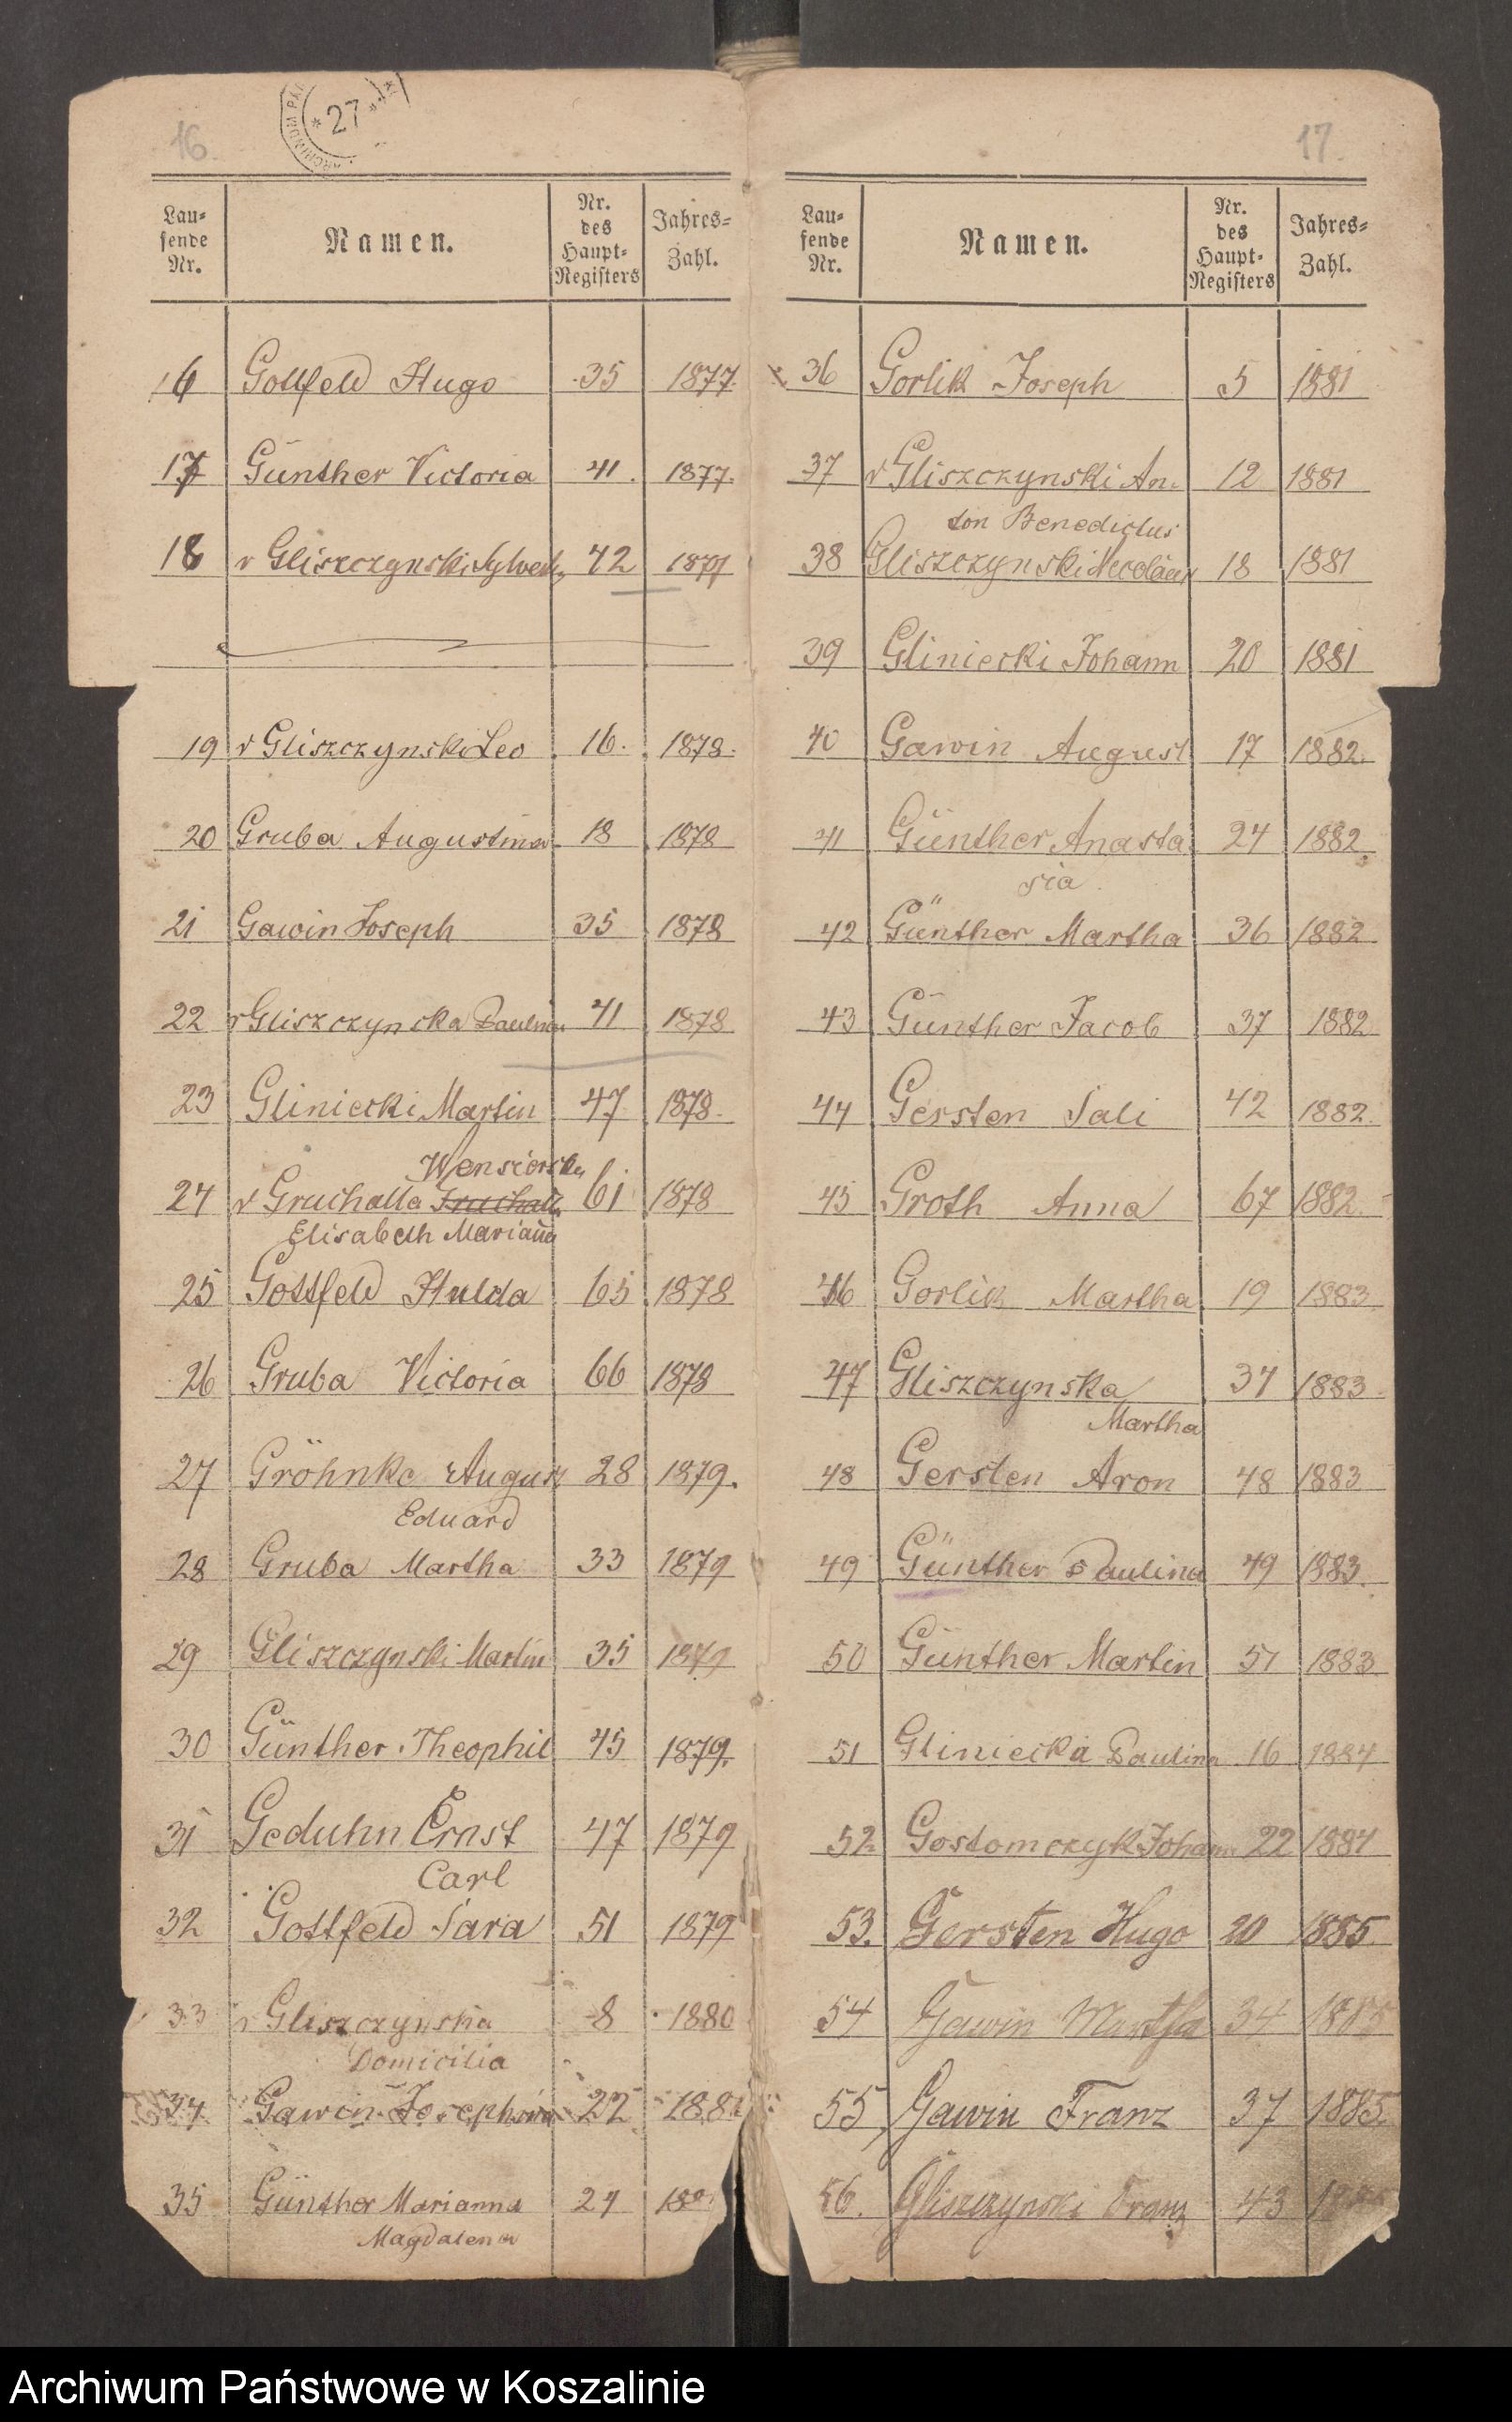 16
ARCHIWUM PAŃ
* 27 *
Lau-
fende
Nr.
Namen.
Nr.
des
Haupt-
Registers
Jahres-
Zahl.
16 Gottfeld Hugo 35 1877.
17 Günther Victoria 41. 1877.
18 v Gliszczynski 42 1877
19 v Gliszczynski Leo 16. 1878.
20 Gruba Augustina 18 1878
21 Gawin Joseph 35 1878
22 v Gliszczynska Paulina 41 1878
23 Gliniecki Martin 47 1878.
Wensierska
24 v Gruchalla Gruchalla 61 1878
Elisabeth Mariana
25 Gottfeld Hulda 65 1878
26 Gruba Victoria 66 1878
27 Gröhnke August 28 1879.
Eduard
28 Gruba Martha 33 1879
29 Gliszczynski Martin 35 1879
30 Günther Theophil 45 1879.
31 Geduhn Ernst 47 1879
Carl
32 Gottfeld Sara 51 1879
33 v Gliszczynska 8 1880
Domicilia
34 Gawin Josephina 22 188
35 Günther Marianna 24
Magdalena
17.
Lau-
fende
Nr.
Namen.
Nr.
des
Haupt-
Registers
Jahres-
Zahl.
36 Gorlik Joseph 5 1881
37 v Gliszczynski An- 12 1881
ton Benedictus
38 Gliszczynski 18 1881
39 Gliniecki Johann 20 1881
40 Gawin August 17 1882.
41 Günther Anasta 24 1882
sia
42 Günther Martha 36 1882
43 Günther Jacob 37 1882
44 Gersten Sali 42 1882.
45 Groth Anna 67 1882.
46 Gorlik Martha 19 1883
47 Gliszczynska 37 1883
Martha
48 Gersten Aron 48 1883
49 Günther Paulina 49 1883.
50 Günther Martin 51 1883
51 Gliniecka Paulina 16 1884
52 Gostomczyk Johann 22 1884
53. Gersten Hugo 20 1885.
54 Gawin Martha 34 1885
55 Gawin Franz 37 1885.
56. Gliszczynski Franz 43 1885
Archiwum Państwowe w Koszalinie